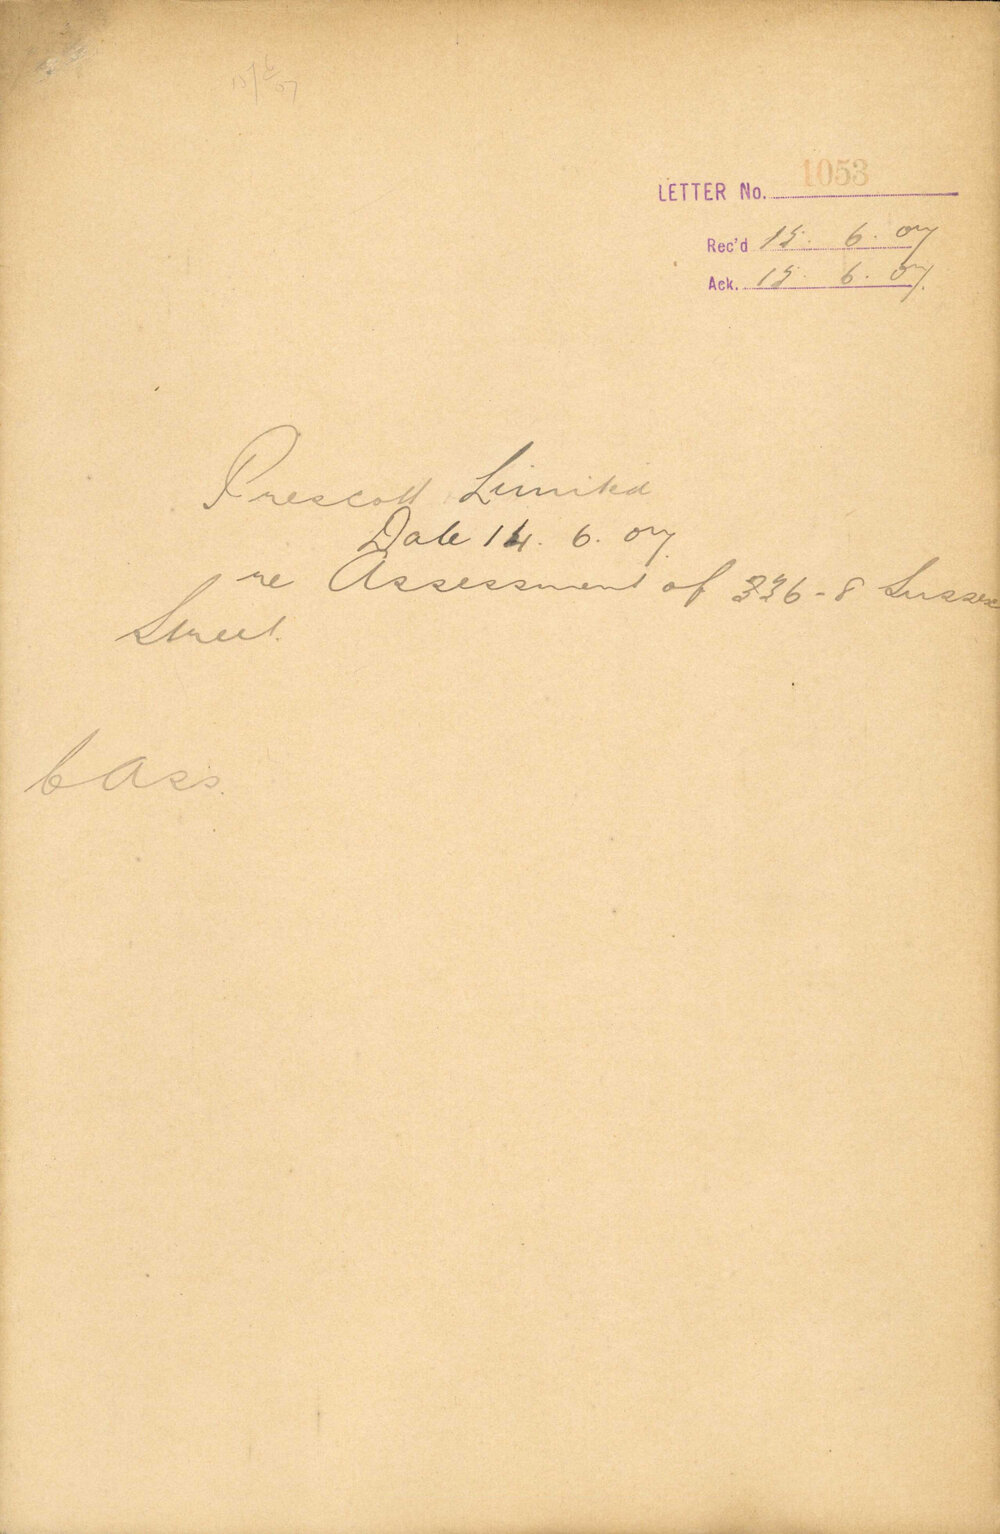 1053
LETTER No.
Rec'd 15. 6. 07
Ack. 15. 6. 07.
Prescott Limited
Date 14. 6. 07
re Assessment of 336-8 Sussex
Street.
C Ass.